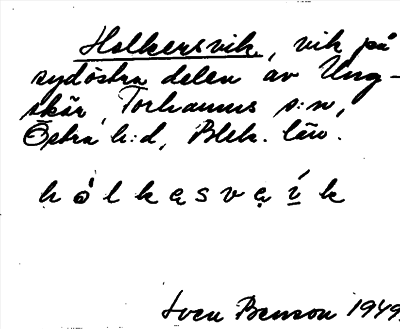 Holkersvik, vik på
sydöstra delen av Ung-
skär, Torhamns s:n,
Östra h:d, Blek. län.
hȯlkęsvęík
Sven Benson 1949.